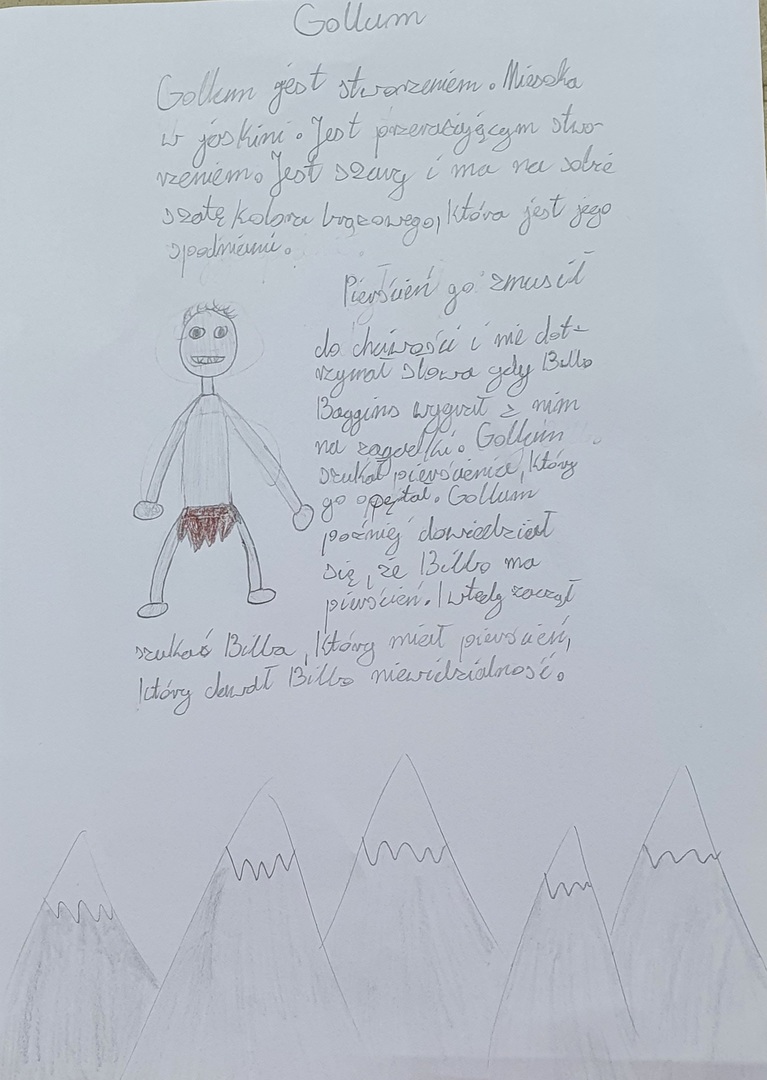 Gollum
Gollum jest stworzeniem. Mieszka
w jaskini. Jest przerażającym stwo-
rzeniem. Jest szary i ma na sobie
szatę koloru brązowego, która jest jego
spodniami.
Pierścień go zmusił
do chciwości i nie dot-
rzymał słowa gdy Bilbo
Baggins wygrał z nim
na zagadki. Gollum
szukał pierścienia, który
go opętał. Gollum
poźniej dowiedział
się, że Bilbo ma
pierścień. I wtedy zaczął
szukać Bilba, który miał pierścień,
który dawał Bilbo niewidzialność.